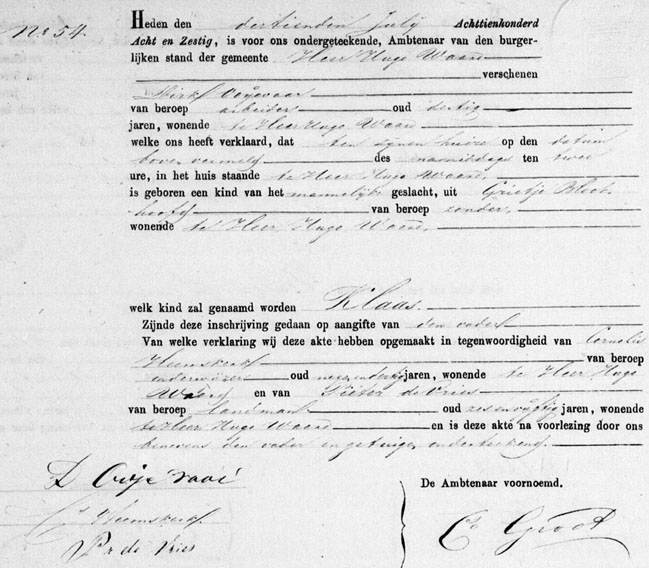 No 54.
Heden den dertienden July Achttienhonderd
Acht en Zestig, is voor ons ondergeteekende, Ambtenaar van den burger-
lijken stand der gemeente Heer Hugo Waard
verschenen
Dirk
van beroep arbeider oud dertig
jaren, wonende te Heer Hugo Waard
welke ons heeft verklaard, dat ten zijnen huize op den datum
boven vermeld des namiddags ten twee
ure, in het huis staande te Heer Hugo Waard
is geboren een kind van het mannelijke geslacht, uit Grietje
van beroep zonder,
wonende te Heer Hugo Waard,
welk kind zal genaamd worden Klaas.
Zijnde deze inschrijving gedaan op aangifte van den vader
Van welke verklaring wij deze akte hebben opgemaakt in tegenwoordigheid van Cornelis
Heemskerk van beroep
onderwijzer oud jaren, wonende te Heer Hugo
Waard en van Pieter de Vries
van beroep landman oud zes en vijftig jaren, wonende
te Heer Hugo Waard en is deze akte na voorlezing door ons
benevens den vader en getuigen onderteekend.
De Ambtenaar voornoemd.
C Heemskerk
Pr de Vries
C Groot